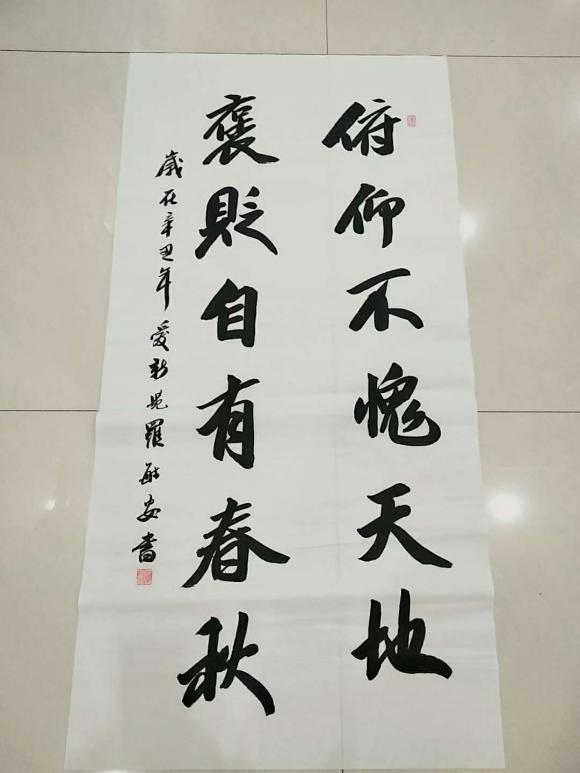 俯仰不愧天地
褒貶自有春秋
歲在辛丑年愛新覺羅敏安書